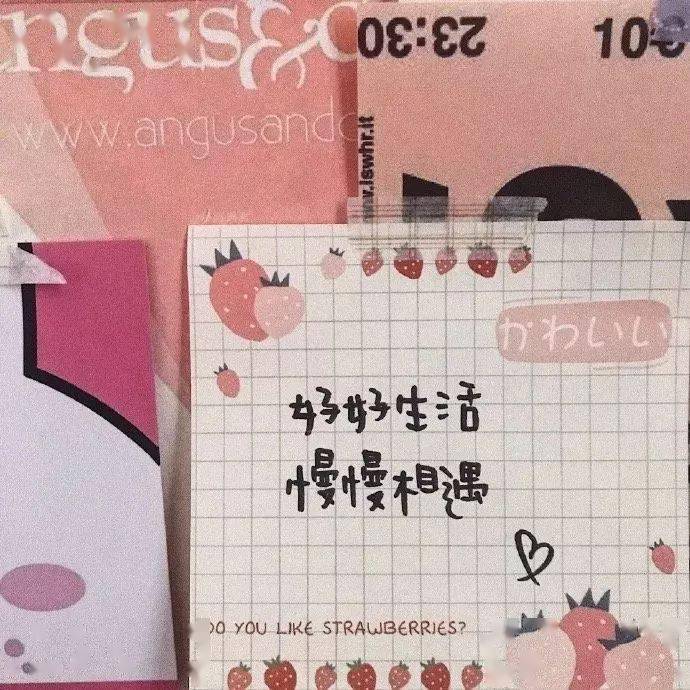 angus&
www.angusando
23:30
www.iswhr.it
かわいい
好好生活
慢慢相遇
DO YOU LIKE STRAWBERRIES?